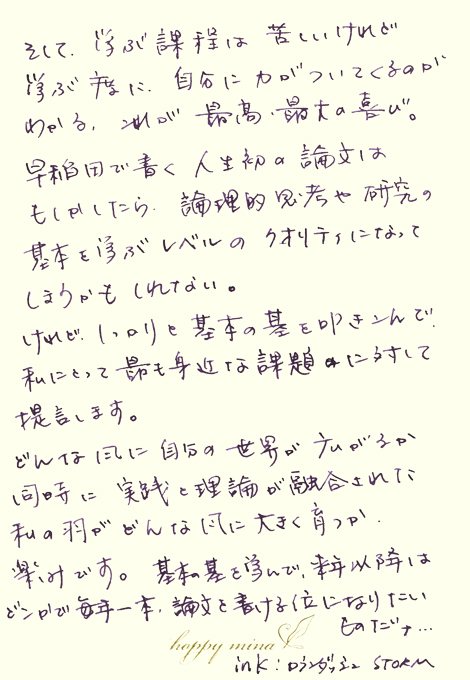 そして、学ぶ課程は 苦しいけれど
学ぶ度に、自分に力がついてくるのが
わかる、これが 最高・最大の喜び。
早稲田で書く 人生初の論文は
もしかしたら、論理的思考や研究の
基本を学ぶレベルの クオリティになって
しまうかも しれない。
けれど、しっかりと基本の基を叩きこんで、
私にとって最も身近な課題 に対して
提言します。
どんな風に自分の世界が 広がるか
同時に 実践と理論が融合された
私の羽がどんな風に大きく育つか、
楽しみです。 基本の基を学んで、来年以降は
ピンの で毎年一本、論文を書ける位になりたい
ものだナ…
happy mina
ink : ローランダッシュ STORM